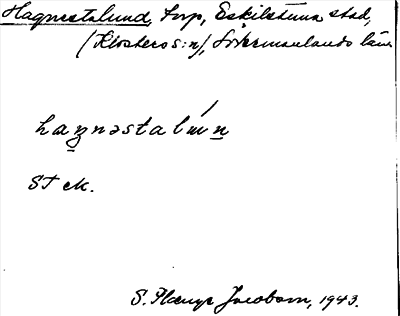 Hagnestalund, torp, Eskilstuna stad,
(Klosters s:n), Södermanlands län
haŋnəstalúnn
ST ck.
S. Jacobson, 1943.